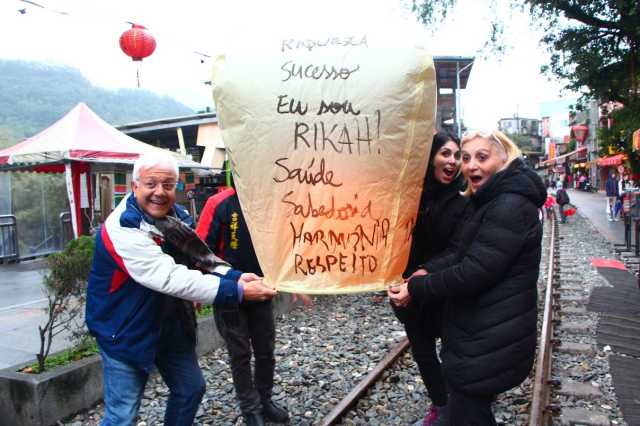 RIQUEZA
SUCESSO
EU SOU
RIKAH!
SAÚDE
SABEDORIA
HARMONIA
RESPEITO